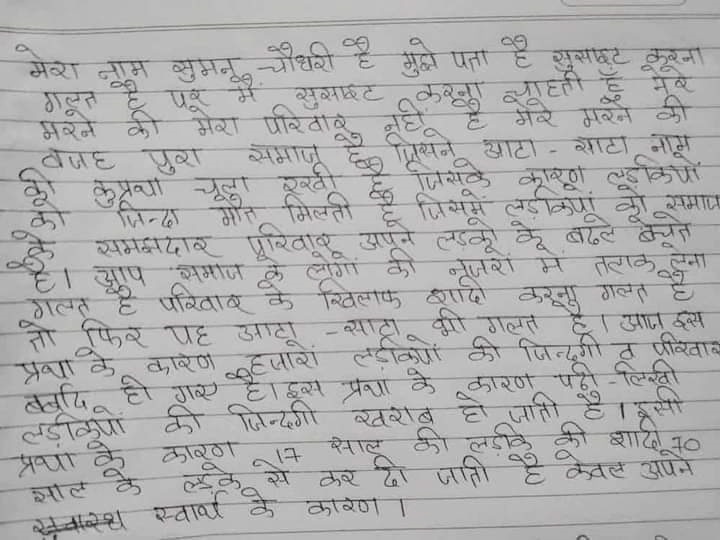 मेरा नाम सुमन चौधरी है मुझे पता है सुसाइट करना
गलत है पर मैं सुसाइट करना चाहती हूँ मेरे
मरने की मेरा परिवार नही है मेरे मरने की
वजह पुरा समाज है जिसने आटा-साटा नाम
की कुप्रथा चला रखी है जिसके कारण लड़कियों
को जिन्दा मौत मिलती है जिसमें लड़कियों को समाज
के समझदार परिवार अपने लड़को के बदले बेचते
है। आप समाज के लोगों की नजरों में तलाक लेना
गलत है परिवार के खिलाफ शादी करना गलत है
तो फिर यह आटा-साटा भी गलत है। आज इस
प्रथा के कारण हजारों लड़कियों की जिन्दगी व परिवार
बर्बाद हो गए है। इस प्रथा के कारण पढ़ी-लिखी
लड़कियों की जिन्दगी खराब हो जाती है। इसी
प्रथा के कारण 17 साल की लड़कि की शादी 70
साल के लड़के से कर दी जाती है केवल अपने
स्वार्थ के कारण।